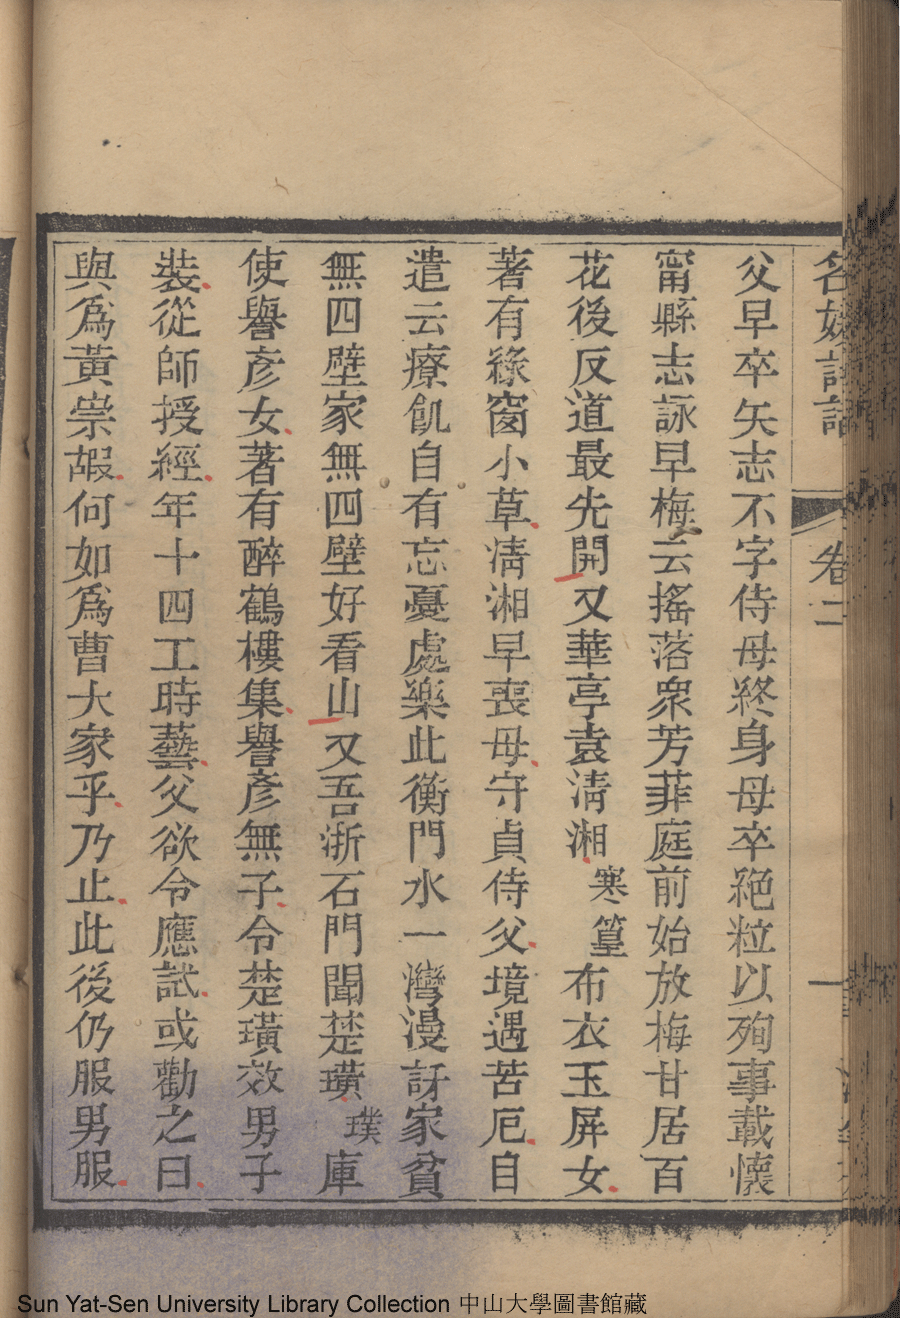 名媛詩話 卷二 一
父早卒矢志不字侍母終身母卒絕粒以殉事載懷
甯縣志詠早梅云搖落衆芳菲庭前始放梅甘居百
花後反道最先開又華亭袁淸湘寒篁布衣玉屏女
著有綠窗小草淸湘早喪母守貞侍父境遇苦厄自
遣云療飢自有忘憂處樂此衡門水一灣漫訝家貧
無四壁家無四壁好看山又吾浙石門聞楚璜璞庫
使譽彥女著有醉鶴樓集譽彥無子令楚璜效男子
裝從師授經年十四工時藝父欲令應試或勸之曰
與爲黃崇嘏何如爲曹大家乎乃止此後仍服男服
Sun Yat-Sen University Library Collection 中山大學圖書館藏